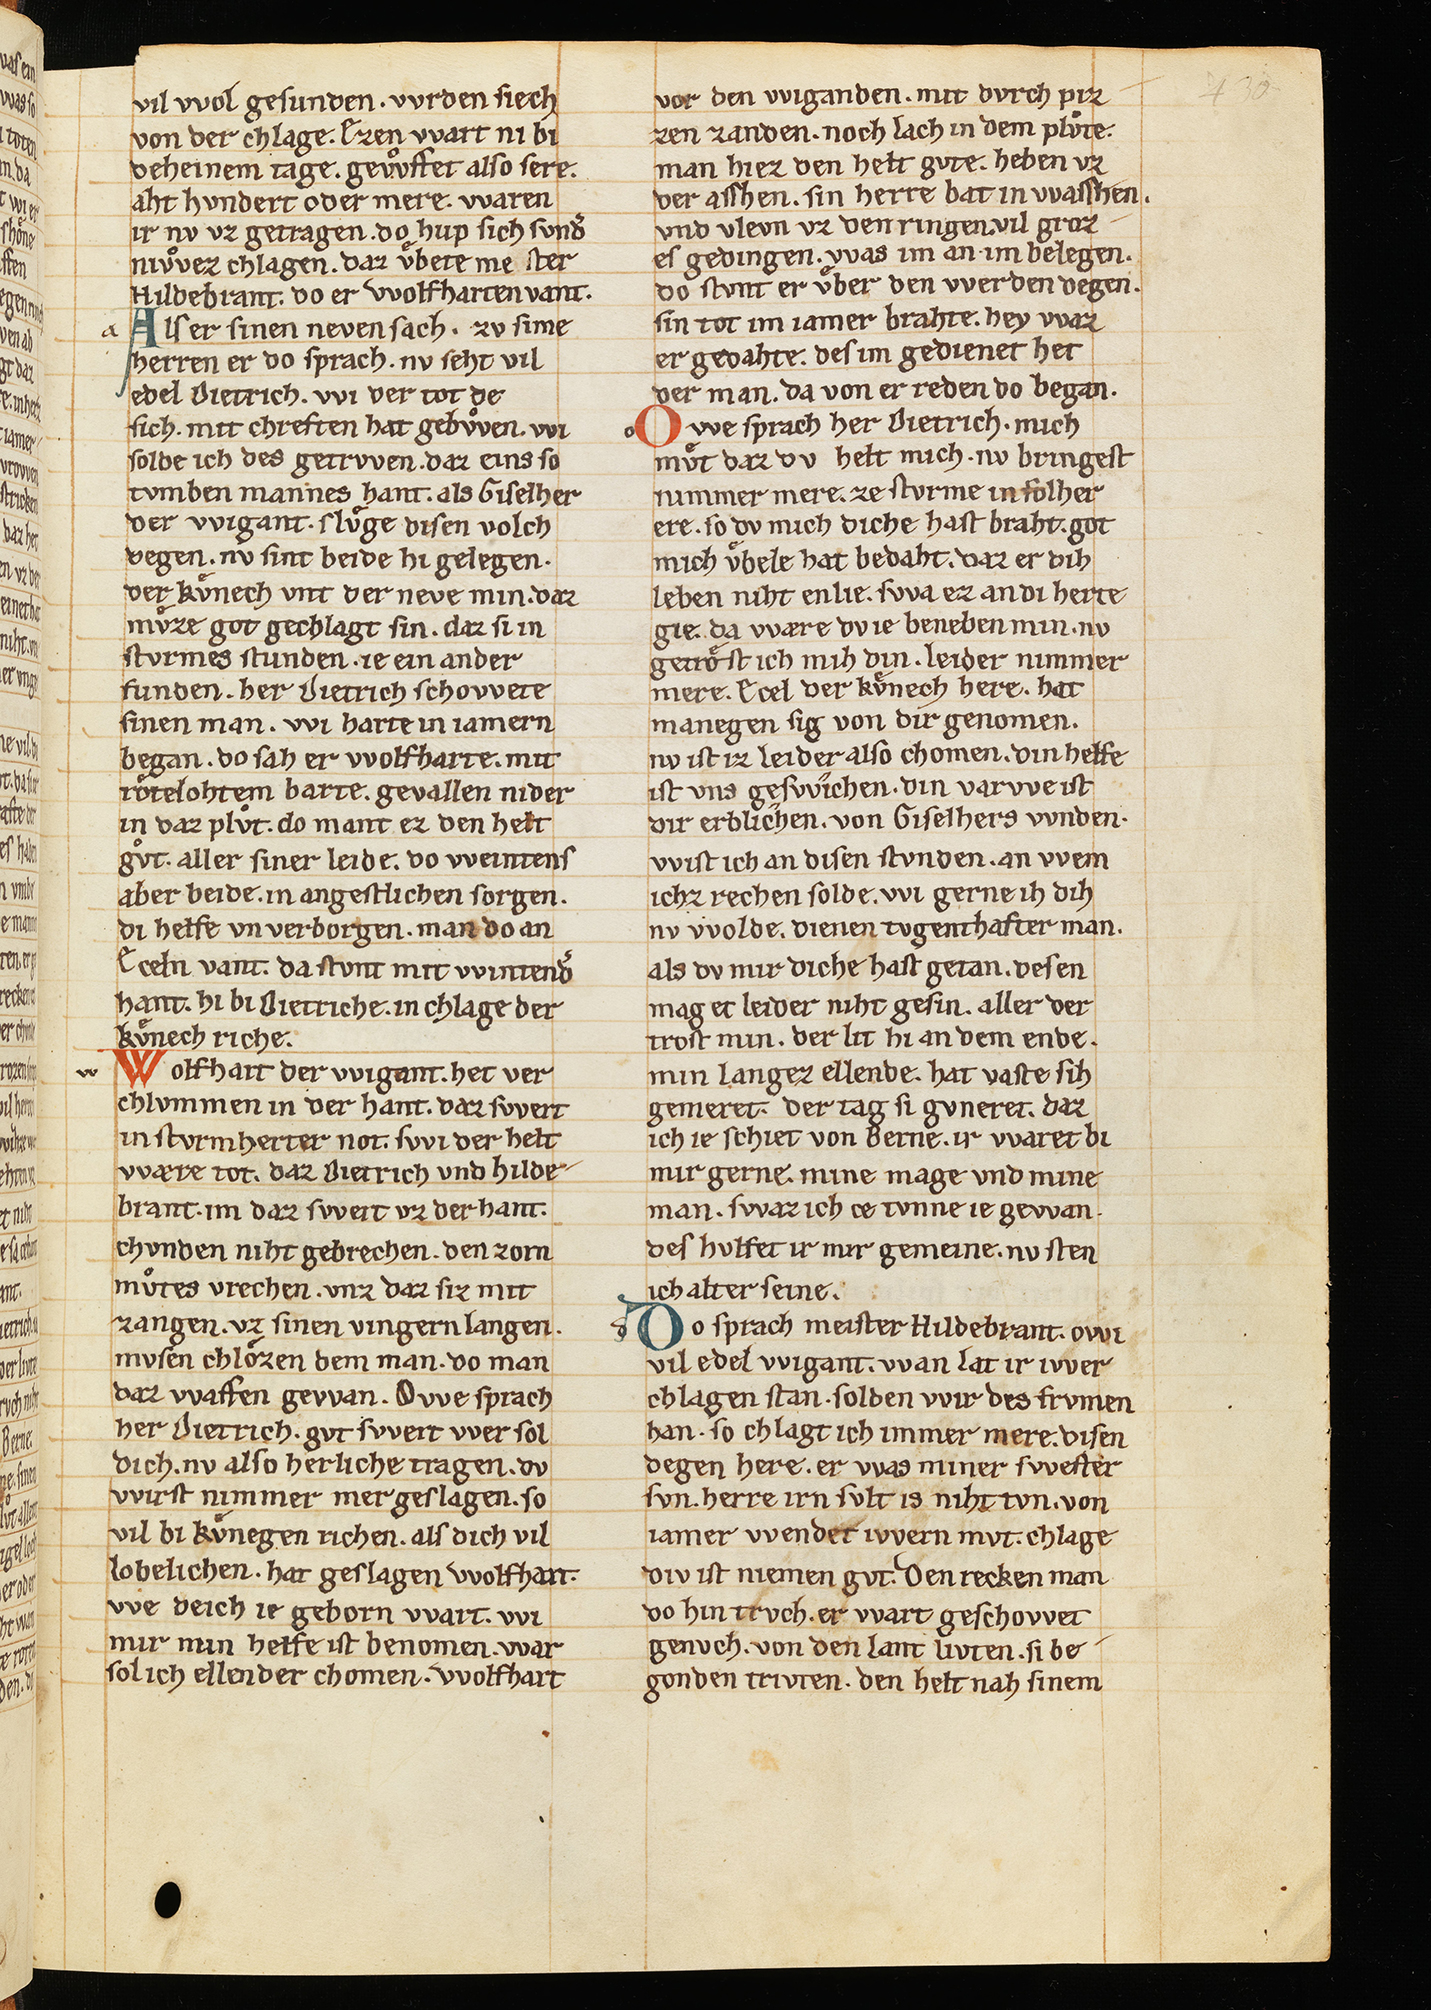 vil vvol gesunden. vvrden siech
von der chlage. Ezen vvart ni bi
deheinem tage. gevͦffet also sere.
aht hvndert oder mere. vvaren
ir nv vz getragen. do hup sich svnd᷑
nivͦvez chlagen. daz vͦbete me ster
Hildebrant. do er VVolfharten vant.
a Als er sinen neven sach. zv sime
herren er do sprach. nv seht vil
edel Dietrich. vvi der tot de
sich. mit chreften hat gebvͦven. vvi
solde ich des getrvven. daz eins so
tvmben mannes hant. als Giselher
der vvigant. slvͦge disen volch
degen. nv sint beide hi gelegen.
der kvͦnech vnt der neve min. daz
mvͦze got gechlagt sin. daz si in
stvrmes stunden. ie ein ander
funden. her Dietrich schovvete
sinen man. vvi harte in iamern
began. do sah er vvolfharte. mit
roͤtelohtem barte. gevallen nider
in daz plvͦt. do mant ez den helt
gvͦt. aller siner leide. do vveintens
aber beide. in angestlichen sorgen.
di helfe vnverborgen. man do an
Eceln vant. da stvnt mit vvintend᷑
hant. hi bi Dietriche. in chlage der
kvͦnech riche.
w Wolfhart der vvigant. het ver
chlvmmen in der hant. daz svvert
in stvrmherter not. svvi der helt
vvære tot. daz Dietrich vnd hilde
brant. im daz svvert vz der hant.
chvnden niht gebrechen. den zorn
mvͦtes vrechen. vnz daz siz mit
zangen. vz sinen vingern langen.
mvsen chloͤzen dem man. do man
daz vvaffen gevvan. Ovve sprach
her Dietrich. gvt svvert vver sol
dich. nv also herliche tragen. dv
vvirst nimmer mer geslagen. so
vil bi kvͦnegen richen. als dich vil
lobelichen. hat geslagen VVolfhart.
vve deich ie geborn vvart. vvi
mir min helfe ist benomen. vvar
sol ich ellender chomen. VVolfhart
vor den vviganden. mit dvrch piz
zen zanden. noch lach in dem plvͦte.
man hiez den helt gvte. heben vz
der asshen. sin herre bat in vvasshen.
vnd vlevn vz den ringen. vil groz
es gedingen. vvas im an im belegen.
do stvnt er vͦber den vverden degen.
sin tot im iamer brahte. hey vvaz
er gedahte. des im gedienet het
der man. da von er reden do began.
o Ovve sprach her Dietrich. mich
mvͦt daz dv helt mich. nv bringest
nimmer mere. ze stvrme in solher
ere. so dv mich diche hast braht. got
mich vͦbele hat bedaht. daz er dih
leben niht enlie. svva ez an di herte
gie. da vvære dv ie beneben min. nv
getroͤst ich mih din. leider nimmer
mere. Ecel der kvͦnech here. hat
manegen sig von dir genomen.
nv ist iz leider also chomen. din helfe
ist vns gesvvichen. din varvve ist
dir erblichen. von Giselhers vvnden.
vvist ich an disen stvnden. an vvem
ichz rechen solde. vvi gerne ih dih
nv vvolde. dienen tvgenthafter man.
als dv mir diche hast getan. des en
mag et leider niht gesin. aller der
trost min. der lit hi an dem ende.
min langez ellende. hat vaste sih
gemeret. der tag si gvneret. daz
ich ie schiet von Berne. ir vvaret bi
mir gerne. mine mage vnd mine
man. svvaz ich ce tvnne ie gevvan.
des hvlfet ir mir gemeine. nv sten
ich alter seine.
d Do sprach meister Hildebrant. ovvi
vil edel vvigant. vvan lat ir ivver
chlagen stan. solden vvir des frvmen
han. so chlagt ich immer mere. disen
degen here. er vvas miner svvester
svn. herre irn svlt is niht tvn. von
iamer vvendet ivvern mvt. chlage
div ist niemen gvt. Den recken man
do hin trvch. er vvart geschovvet
genvch. von den lant livten. si be
gonden trivten. den helt nah sinem